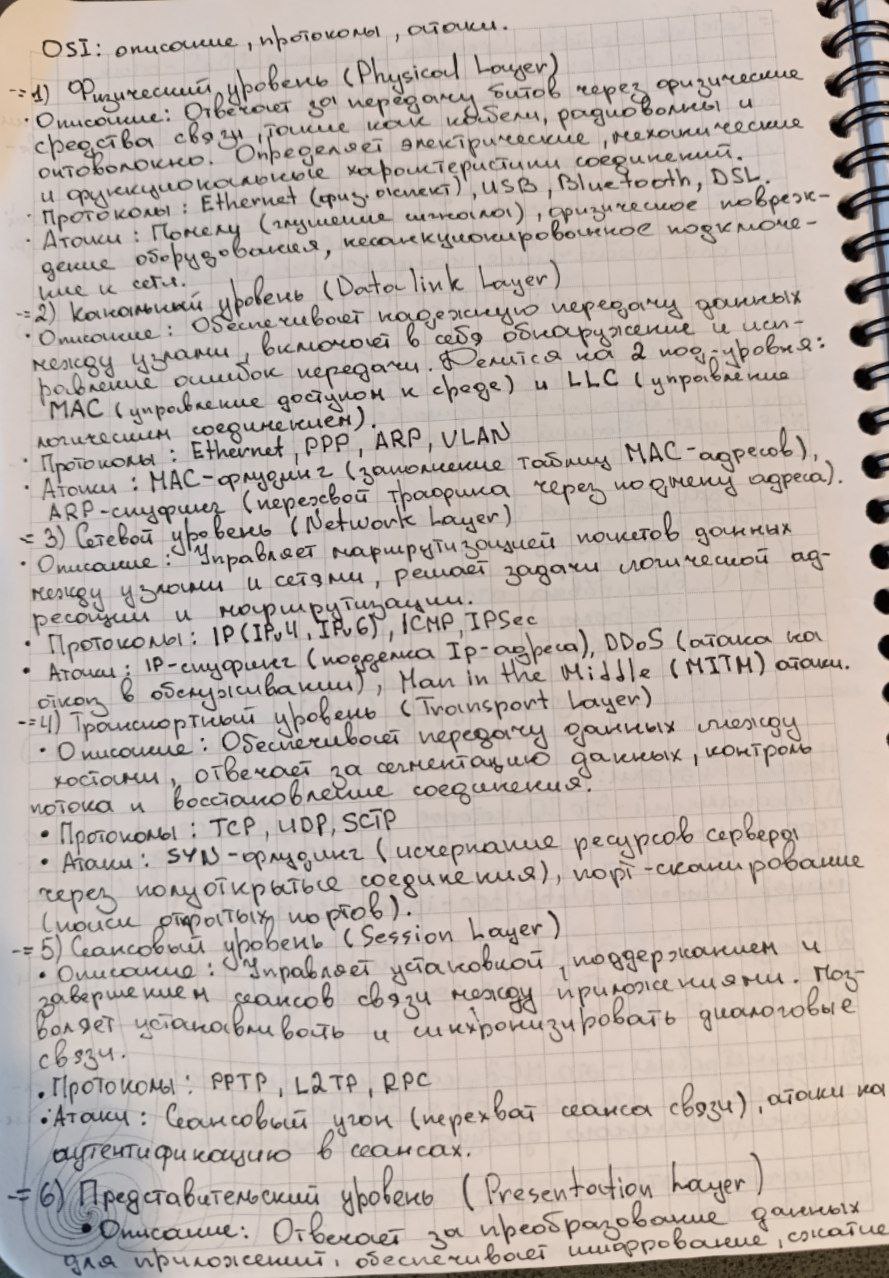 OSI: описание, протоколы, атаки.
-= 1) Физический уровень (Physical Layer)
• Описание: Отвечает за передачу битов через физические
средства связи, такие как кабели, радиоволны и
оптоволокно. Определяет электрические, механические
и функциональные характеристики соединений.
• Протоколы: Ethernet (физ. аспект), USB, Bluetooth, DSL.
• Атаки: Помехи (глушение сигнала), физическое повреж-
дение оборудования, несанкционированное подключе-
ние к сети.
-= 2) Канальный уровень (Data link Layer)
• Описание: Обеспечивает надежную передачу данных
между узлами, включает в себя обнаружение и исп-
равление ошибок передачи. Делится на 2 под-уровня:
MAC (управление доступом к среде) и LLC (управление
логическим соединением).
• Протоколы: Ethernet, PPP, ARP, VLAN
• Атаки: MAC-флудинг (заполнение таблиц MAC-адресов),
ARP-спуфинг (перехват трафика через подмену адреса).
= 3) Сетевой уровень (Network Layer)
• Описание: Управляет маршрутизацией пакетов данных
между узлами и сетями, решает задачи логической ад-
ресации и маршрутизации.
• Протоколы: IP (IPv4, IPv6), ICMP, IPSec
• Атаки: IP-спуфинг (подделка Ip-адреса), DDoS (атака на
отказ в обслуживании), Man in the Middle (MITM) атаки.
-= 4) Транспортный уровень (Transport Layer)
• Описание: Обеспечивает передачу данных между
хостами, отвечает за сегментацию данных, контроль
потока и восстановление соединения.
• Протоколы: TCP, UDP, SCTP
• Атаки: SYN-флудинг (исчерпание ресурсов сервера
через полуоткрытые соединения), порт-сканирование
(поиск открытых портов).
-= 5) Сеансовый уровень (Session Layer)
• Описание: Управляет установкой, поддержанием и
завершением сеансов связи между приложениями. Поз-
воляет устанавливать и синхронизировать диалоговые
связи.
• Протоколы: PPTP, L2TP, RPC
• Атаки: Сеансовый угон (перехват сеанса связи), атаки на
аутентификацию в сеансах.
-= 6) Представительский уровень (Presentation Layer)
• Описание: Отвечает за преобразование данных
для приложений, обеспечивает шифрование, сжатие